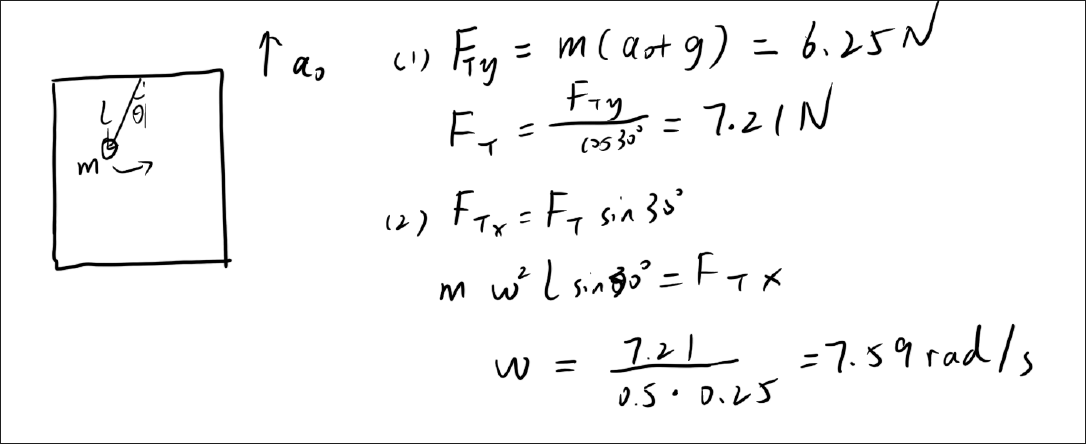 ↑ a₀
l θ
m
(1) F_Ty = m(a₀+g) = 6.25N
F_T = F_Ty / cos30° = 7.21N
(2) F_Tx = F_T sin30°
m w² l sin30° = F_Tx
w = 7.21 / 0.5 · 0.25 = 7.59 rad/s